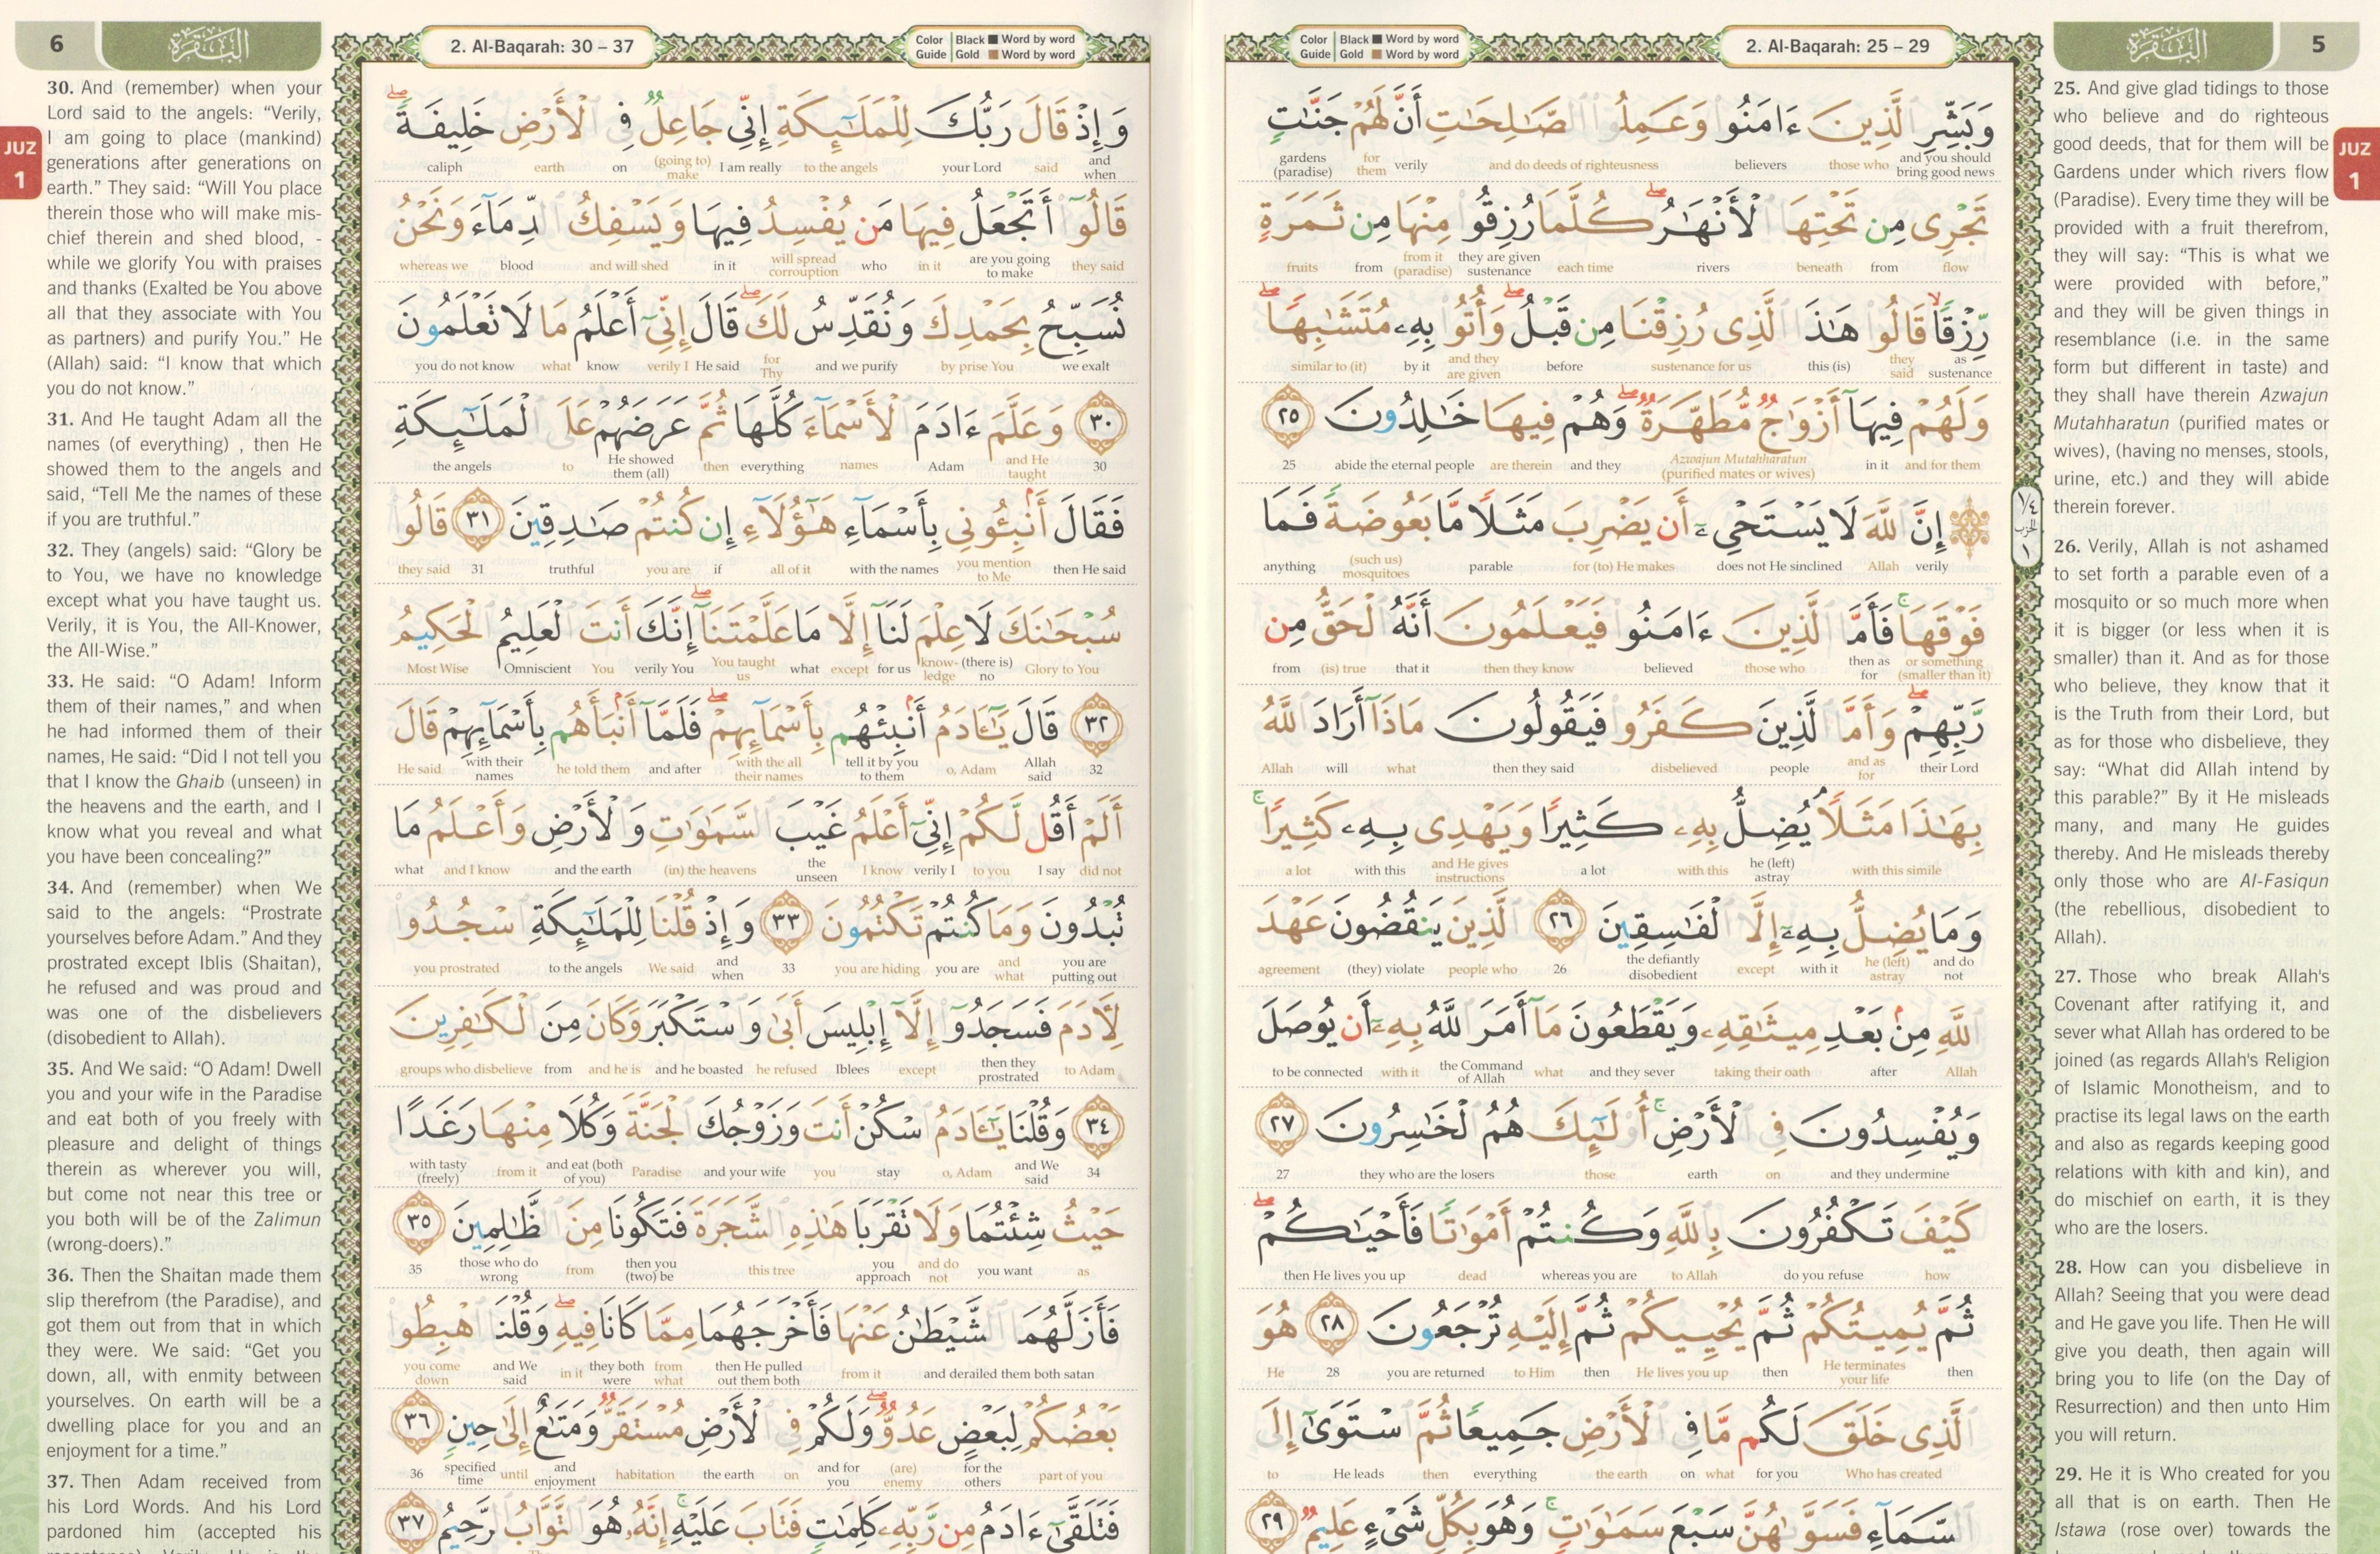 5
البقرة
JUZ
1
2. Al-Baqarah: 25 – 29
Color Guide | Black Word by word
Gold Word by word
وَبَشِّرِ ٱلَّذِينَ ءَامَنُوا۟ وَعَمِلُوا۟ ٱلصَّـٰلِحَـٰتِ أَنَّ لَهُمْ جَنَّـٰتٍ
gardens (paradise) for them verily and do deeds of righteusness believers those who and you should bring good news
تَجْرِى مِن تَحْتِهَا ٱلْأَنْهَـٰرُ ۖ كُلَّمَا رُزِقُوا۟ مِنْهَا مِن ثَمَرَةٍ
fruits from from it (paradise) they are given sustenance each time rivers beneath from flow
رِّزْقًا ۙ قَالُوا۟ هَـٰذَا ٱلَّذِى رُزِقْنَا مِن قَبْلُ ۖ وَأُتُوا۟ بِهِۦ مُتَشَـٰبِهًا ۖ
similar to (it) by it and they are given before sustenance for us this (is) they said as sustenance
وَلَهُمْ فِيهَآ أَزْوَٰجٌ مُّطَهَّرَةٌ ۖ وَهُمْ فِيهَا خَـٰلِدُونَ ٢٥
25 abide the eternal people are therein and they Azwajun Mutahharatun (purified mates or wives) in it and for them
إِنَّ ٱللَّهَ لَا يَسْتَحْىِۦٓ أَن يَضْرِبَ مَثَلًا مَّا بَعُوضَةً فَمَا
anything (such us) mosquitoes parable for (to) He makes does not He sinclined Allah verily
فَوْقَهَا ۚ فَأَمَّا ٱلَّذِينَ ءَامَنُوا۟ فَيَعْلَمُونَ أَنَّهُ ٱلْحَقُّ مِن
from (is) true that it then they know believed those who then as for or something (smaller than it)
رَّبِّهِمْ ۖ وَأَمَّا ٱلَّذِينَ كَفَرُوا۟ فَيَقُولُونَ مَاذَآ أَرَادَ ٱللَّهُ
Allah will what then they said disbelieved people and as for their Lord
بِهَـٰذَا مَثَلًا ۘ يُضِلُّ بِهِۦ كَثِيرًا وَيَهْدِى بِهِۦ كَثِيرًا ۚ
a lot with this and He gives instructions a lot with this he (left) astray with this simile
وَمَا يُضِلُّ بِهِۦٓ إِلَّا ٱلْفَـٰسِقِينَ ٢٦ ٱلَّذِينَ يَنقُضُونَ عَهْدَ
agreement (they) violate people who 26 the defiantly disobedient except with it he (left) astray and do not
ٱللَّهِ مِنۢ بَعْدِ مِيثَـٰقِهِۦ وَيَقْطَعُونَ مَآ أَمَرَ ٱللَّهُ بِهِۦٓ أَن يُوصَلَ
to be connected with it the Command of Allah what and they sever taking their oath after Allah
وَيُفْسِدُونَ فِى ٱلْأَرْضِ ۚ أُو۟لَـٰٓئِكَ هُمُ ٱلْخَـٰسِرُونَ ٢٧
27 they who are the losers those earth on and they undermine
كَيْفَ تَكْفُرُونَ بِٱللَّهِ وَكُنتُمْ أَمْوَٰتًا فَأَحْيَـٰكُمْ ۖ
then He lives you up dead whereas you are to Allah do you refuse how
ثُمَّ يُمِيتُكُمْ ثُمَّ يُحْيِيكُمْ ثُمَّ إِلَيْهِ تُرْجَعُونَ ٢٨ هُوَ
He 28 you are returned to Him then He lives you up then He terminates your life then
ٱلَّذِى خَلَقَ لَكُم مَّا فِى ٱلْأَرْضِ جَمِيعًا ثُمَّ ٱسْتَوَىٰٓ إِلَى
to He leads then everything the earth on what for you Who has created
ٱلسَّمَآءِ فَسَوَّىٰهُنَّ سَبْعَ سَمَـٰوَٰتٍ ۚ وَهُوَ بِكُلِّ شَىْءٍ عَلِيمٌ ٢٩
25. And give glad tidings to those
who believe and do righteous
good deeds, that for them will be
Gardens under which rivers flow
(Paradise). Every time they will be
provided with a fruit therefrom,
they will say: “This is what we
were provided with before,”
and they will be given things in
resemblance (i.e. in the same
form but different in taste) and
they shall have therein Azwajun
Mutahharatun (purified mates or
wives), (having no menses, stools,
urine, etc.) and they will abide
therein forever.
26. Verily, Allah is not ashamed
to set forth a parable even of a
mosquito or so much more when
it is bigger (or less when it is
smaller) than it. And as for those
who believe, they know that it
is the Truth from their Lord, but
as for those who disbelieve, they
say: “What did Allah intend by
this parable?” By it He misleads
many, and many He guides
thereby. And He misleads thereby
only those who are Al-Fasiqun
(the rebellious, disobedient to
Allah).
27. Those who break Allah's
Covenant after ratifying it, and
sever what Allah has ordered to be
joined (as regards Allah's Religion
of Islamic Monotheism, and to
practise its legal laws on the earth
and also as regards keeping good
relations with kith and kin), and
do mischief on earth, it is they
who are the losers.
28. How can you disbelieve in
Allah? Seeing that you were dead
and He gave you life. Then He will
give you death, then again will
bring you to life (on the Day of
Resurrection) and then unto Him
you will return.
29. He it is Who created for you
all that is on earth. Then He
Istawa (rose over) towards the
6
البقرة
JUZ
1
2. Al-Baqarah: 30 – 37
Color Guide | Black Word by word
Gold Word by word
وَإِذْ قَالَ رَبُّكَ لِلْمَلَـٰٓئِكَةِ إِنِّى جَاعِلٌ فِى ٱلْأَرْضِ خَلِيفَةً ۖ
caliph earth on (going to) make I am really to the angels your Lord said and when
قَالُوٓا۟ أَتَجْعَلُ فِيهَا مَن يُفْسِدُ فِيهَا وَيَسْفِكُ ٱلدِّمَآءَ وَنَحْنُ
whereas we blood and will shed in it will spread corrouption who in it are you going to make they said
نُسَبِّحُ بِحَمْدِكَ وَنُقَدِّسُ لَكَ ۖ قَالَ إِنِّىٓ أَعْلَمُ مَا لَا تَعْلَمُونَ
you do not know what know verily I He said for Thy and we purify by prise You we exalt
٣٠ وَعَلَّمَ ءَادَمَ ٱلْأَسْمَآءَ كُلَّهَا ثُمَّ عَرَضَهُمْ عَلَى ٱلْمَلَـٰٓئِكَةِ
the angels to He showed them (all) then everything names Adam and He taught 30
فَقَالَ أَنۢبِـُٔونِى بِأَسْمَآءِ هَـٰٓؤُلَآءِ إِن كُنتُمْ صَـٰدِقِينَ ٣١ قَالُوا۟
they said 31 truthful you are if all of it with the names you mention to Me then He said
سُبْحَـٰنَكَ لَا عِلْمَ لَنَآ إِلَّا مَا عَلَّمْتَنَآ ۖ إِنَّكَ أَنتَ ٱلْعَلِيمُ ٱلْحَكِيمُ
Most Wise Omniscient You verily You You taught us what except for us know-ledge (there is) no Glory to You
٣٢ قَالَ يَـٰٓـَٔادَمُ أَنۢبِئْهُم بِأَسْمَآئِهِمْ ۖ فَلَمَّآ أَنۢبَأَهُم بِأَسْمَآئِهِمْ قَالَ
He said with their names he told them and after with the all their names tell it by you to them o, Adam Allah said 32
أَلَمْ أَقُل لَّكُمْ إِنِّىٓ أَعْلَمُ غَيْبَ ٱلسَّمَـٰوَٰتِ وَٱلْأَرْضِ وَأَعْلَمُ مَا
what and I know and the earth (in) the heavens the unseen I know verily I to you I say did not
تُبْدُونَ وَمَا كُنتُمْ تَكْتُمُونَ ٣٣ وَإِذْ قُلْنَا لِلْمَلَـٰٓئِكَةِ ٱسْجُدُوا۟
you prostrated to the angels We said and when 33 you are hiding you are and what you are putting out
لِـَٔادَمَ فَسَجَدُوٓا۟ إِلَّآ إِبْلِيسَ أَبَىٰ وَٱسْتَكْبَرَ وَكَانَ مِنَ ٱلْكَـٰفِرِينَ
groups who disbelieve from and he is and he boasted he refused Iblees except then they prostrated to Adam
٣٤ وَقُلْنَا يَـٰٓـَٔادَمُ ٱسْكُنْ أَنتَ وَزَوْجُكَ ٱلْجَنَّةَ وَكُلَا مِنْهَا رَغَدًا
with tasty (freely) from it and eat (both of you) Paradise and your wife you stay o, Adam and We said 34
حَيْثُ شِئْتُمَا وَلَا تَقْرَبَا هَـٰذِهِ ٱلشَّجَرَةَ فَتَكُونَا مِنَ ٱلظَّـٰلِمِينَ ٣٥
35 those who do wrong from then you (two) be this tree you approach and do not you want as
فَأَزَلَّهُمَا ٱلشَّيْطَـٰنُ عَنْهَا فَأَخْرَجَهُمَا مِمَّا كَانَا فِيهِ ۖ وَقُلْنَا ٱهْبِطُوا۟
you come down and We said in it they both were from what then He pulled out them both from it and derailed them both satan
بَعْضُكُمْ لِبَعْضٍ عَدُوٌّ ۖ وَلَكُمْ فِى ٱلْأَرْضِ مُسْتَقَرٌّ وَمَتَـٰعٌ إِلَىٰ حِينٍ ٣٦
36 specified time until and enjoyment habitation the earth on and for you (are) enemy for the others part of you
فَتَلَقَّىٰٓ ءَادَمُ مِن رَّبِّهِۦ كَلِمَـٰتٍ فَتَابَ عَلَيْهِ ۚ إِنَّهُۥ هُوَ ٱلتَّوَّابُ ٱلرَّحِيمُ ٣٧
30. And (remember) when your
Lord said to the angels: “Verily,
I am going to place (mankind)
generations after generations on
earth.” They said: “Will You place
therein those who will make mis-
chief therein and shed blood, -
while we glorify You with praises
and thanks (Exalted be You above
all that they associate with You
as partners) and purify You.” He
(Allah) said: “I know that which
you do not know.”
31. And He taught Adam all the
names (of everything) , then He
showed them to the angels and
said, “Tell Me the names of these
if you are truthful.”
32. They (angels) said: “Glory be
to You, we have no knowledge
except what you have taught us.
Verily, it is You, the All-Knower,
the All-Wise.”
33. He said: “O Adam! Inform
them of their names,” and when
he had informed them of their
names, He said: “Did I not tell you
that I know the Ghaib (unseen) in
the heavens and the earth, and I
know what you reveal and what
you have been concealing?”
34. And (remember) when We
said to the angels: “Prostrate
yourselves before Adam.” And they
prostrated except Iblis (Shaitan),
he refused and was proud and
was one of the disbelievers
(disobedient to Allah).
35. And We said: “O Adam! Dwell
you and your wife in the Paradise
and eat both of you freely with
pleasure and delight of things
therein as wherever you will,
but come not near this tree or
you both will be of the Zalimun
(wrong-doers).”
36. Then the Shaitan made them
slip therefrom (the Paradise), and
got them out from that in which
they were. We said: “Get you
down, all, with enmity between
yourselves. On earth will be a
dwelling place for you and an
enjoyment for a time.”
37. Then Adam received from
his Lord Words. And his Lord
pardoned him (accepted his